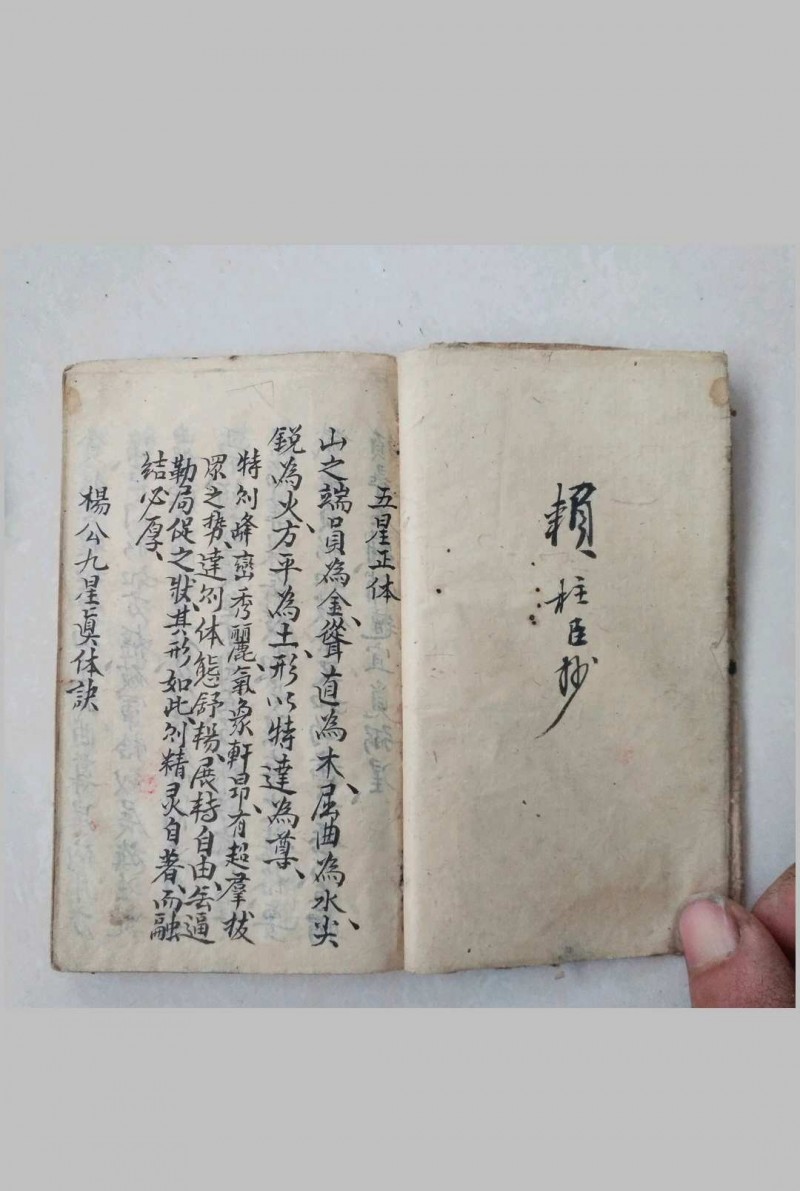 賴柱臣抄
五星正体
山之端員為金、聳直為木、屈曲為水、尖
鋭為火、方平為土、形以特達為尊、
特則峰巒秀麗、氣象軒昂、有超羣拔
眾之勢、達則体態舒暢、展轉自由、無逼
勒局促之狀、其形如此、則精灵自著、而融
結必厚、
楊公九星真体訣